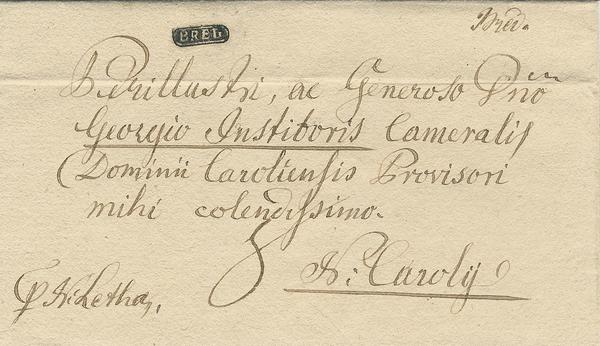 BREG
Bred.
Perillustri, ac Generoso Dnō
Georgio Institoris Cameralis
Dominii Caroliensis Provisori
mihi colendissimo.
N: Caroly
p N: Letha,